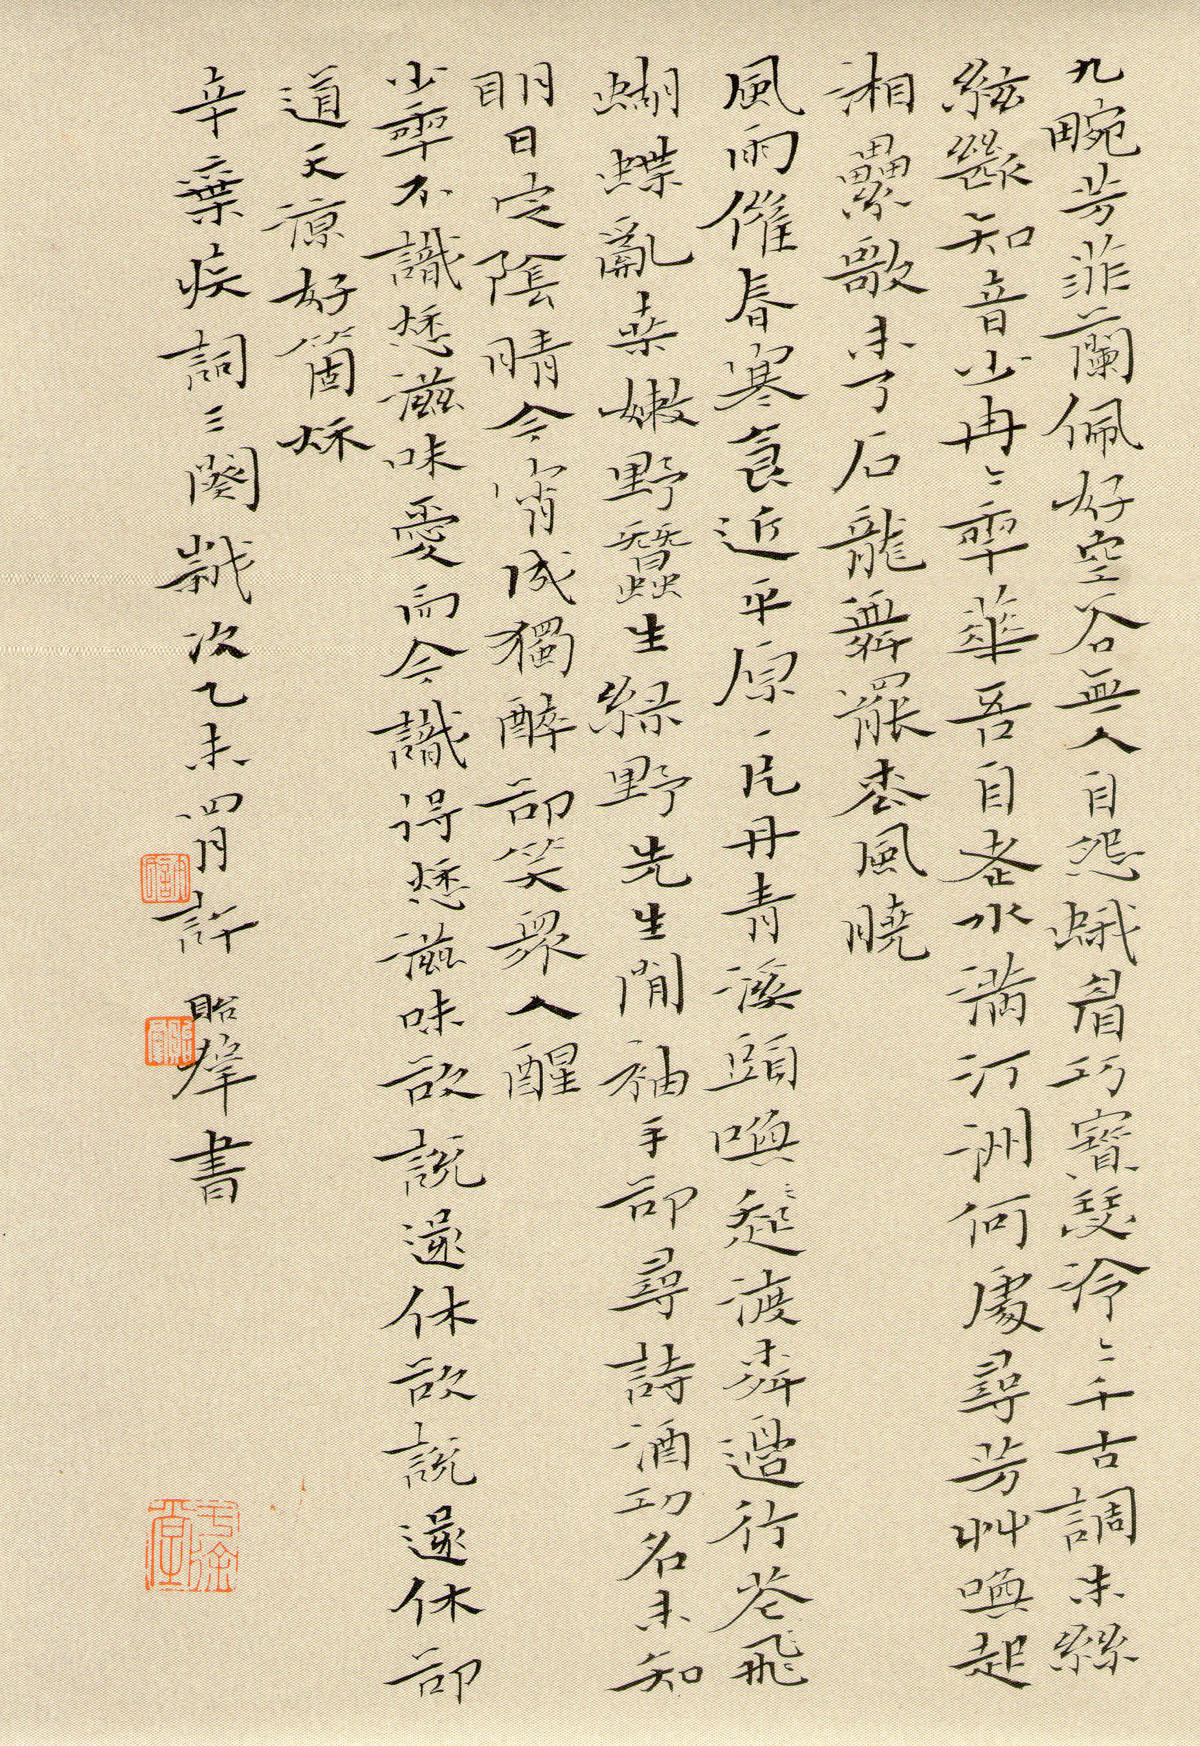 九畹芳菲蘭佩好空谷無人自怨蛾眉巧寶瑟泠〻千古調朱絲
絃斷知音少冉〻年華吾自老水滿汀洲何處尋芳艸喚起
湘纍歌未了石龍舞罷松風曉
風雨催春寒食近平原一片丹青溪頭喚起渡桺邊行花飛
蝴蝶亂桑嫩野蠶生綠野先生閒袖手卻尋詩酒功名未知
明日定陰晴今宵成獨醉卻笑眾人醒
少年不識愁滋味愛而今識得愁滋味欲說還休欲說還休卻
道天涼好箇秋
辛棄疾詞三闋歲次乙未四月許昭書